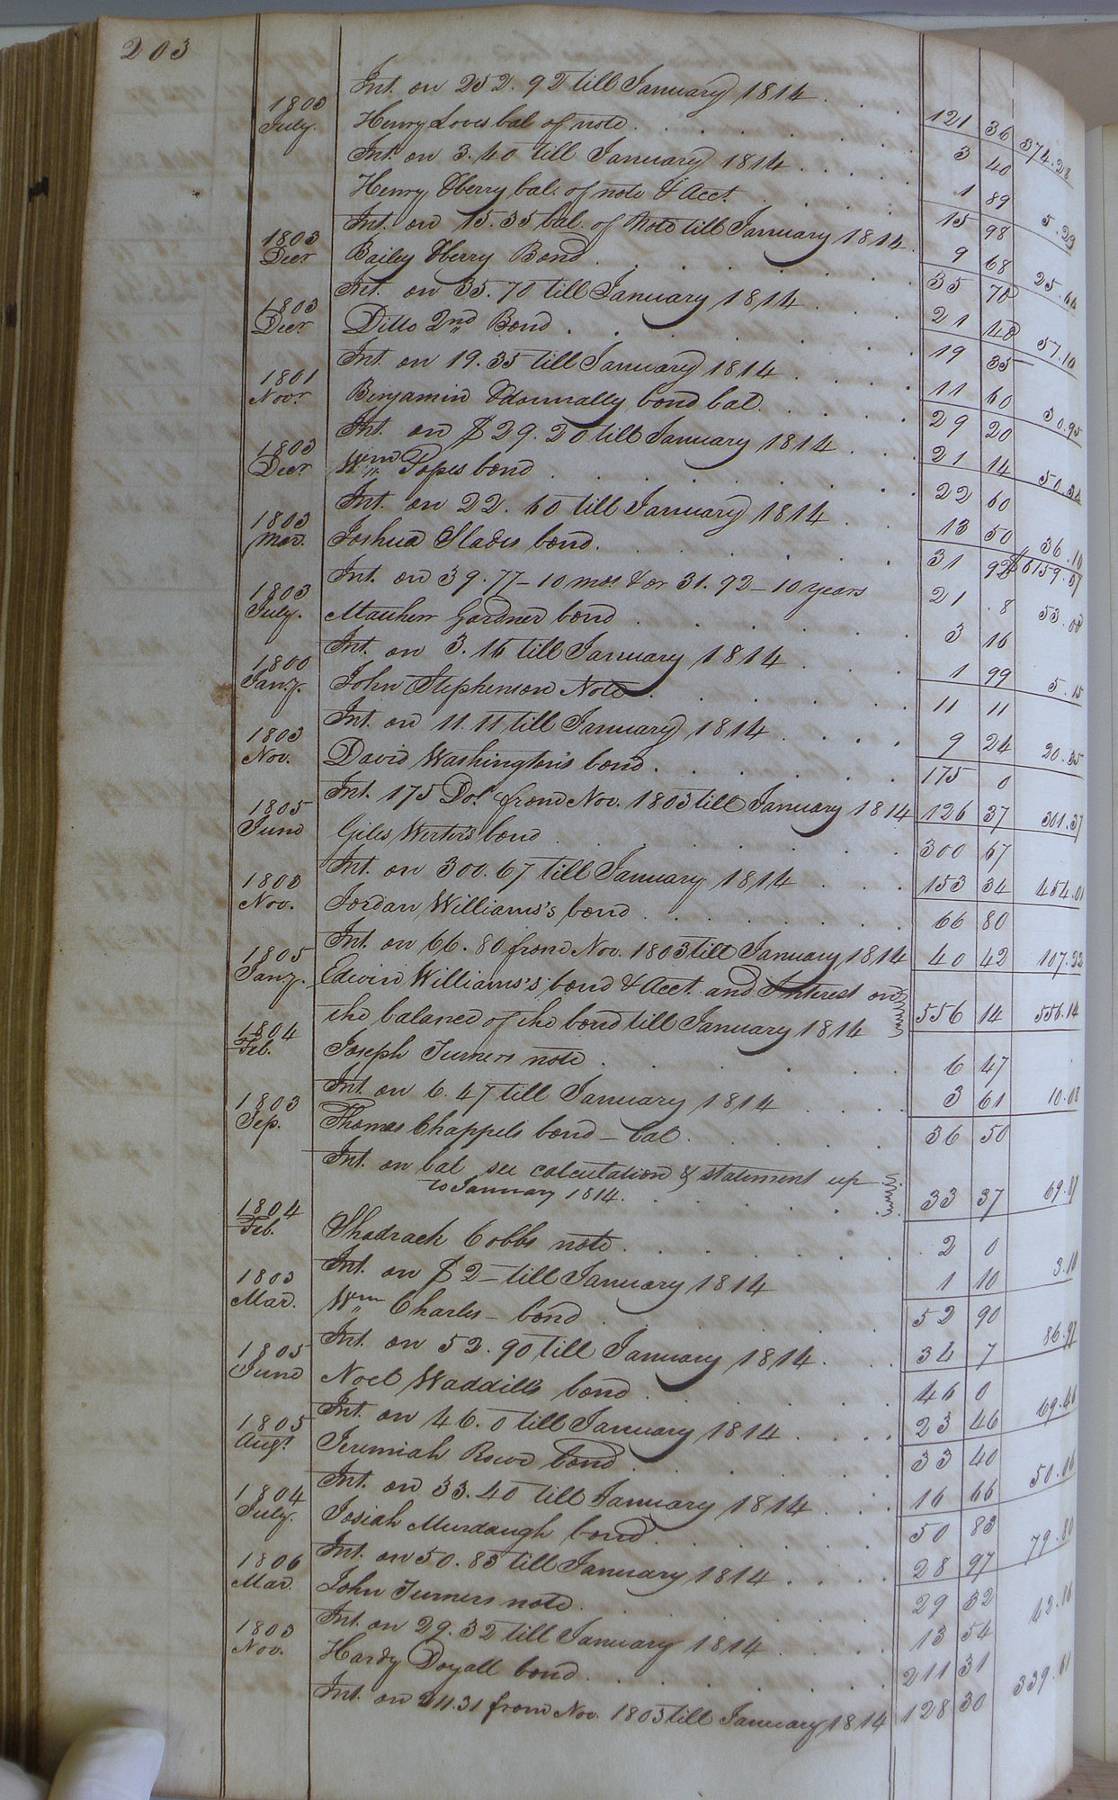 203
Int. on 252. 92 till January 1814 . . . 121 36 374.28
1803 July. Henry Loves bal of note . . . 3 40
Int. on 3. 40 till January 1814 . . . 1 89 5.29
Henry Sherry bal. of note & Acct. . . . 15 98
Int. on 15. 35 bal. of Note till January 1814 . 9 68 25.66
1803 Decr. Bailey Sherry Bond . . . 35 70
Int. on 35. 70 till January 1814 . . . 21 40 57.10
1803 Decr. Ditto 2nd Bond . . . 19 35
Int. on 19. 35 till January 1814 . . . 11 60 30.95
1801 Novr. Benjamin bond bal. . . . 29 20
Int. on $ 29. 20 till January 1814 . . . 21 14 50.34
1803 Decr. Wm Popes bond . . . 22 60
Int. on 22. 60 till January 1814 . . . 13 50 36.10
1803 Mar. Joshua Slades bond . . . 31 92 $6159.57
Int. on 39. 77 – 10 mos. & on 31. 92 – 10 years 21 . 8 53.00
1803 July. Matthew Gardner bond . . . 3 16
Int. on 3. 16 till January 1814 . . . 1 99 5.15
1800 Jany. John Stephenson Note . . . 11 11
Int. on 11. 11 till January 1814 . . . 9 24 20.35
1803 Nov. David Washington's bond . . . 175 0
Int. 175 Dol. from Nov. 1803 till January 1814 126 37 301.37
1805 June Giles Wester's bond . . . 300 67
Int. on 300. 67 till January 1814 . . . 153 34 454.01
1803 Nov. Jordan Williams's bond . . . 66 80
Int. on 66. 80 from Nov. 1803 till January 1814 40 42 107.22
1805 Jany. Edwin Williams's bond & Acct. and Interest on
the balance of the bond till January 1814 556 14 556.14
1804 Feb. Joseph Turners note . . . 6 47
Int. on 6. 47 till January 1814 . . . 3 61 10.08
1803 Sep. Thomas Chappels bond – bal . . . 36 50
Int. on bal see calculation & statement up
to January 1814 . . . 33 37 69.87
1804 Feb. Shadrach Cobbs note . . . 2 0
Int. on $ 2 – till January 1814 1 10 3.10
1803 Mar. Wm Charles – bond . . . 52 90
Int. on 52. 90 till January 1814 . . . 34 7 86.97
1805 June Noel Waddills bond . . . 46 0
Int. on 46. 0 till January 1814 . . . 23 46 69.46
1805 Augt. Jeremiah bond . . . 33 40
Int. on 33. 40 till January 1814 . . . 16 66 50.06
1804 July. Josiah Murdaugh bond . . . 50 83
Int. on 50. 83 till January 1814 . . . 28 97 79.80
1806 Mar. John Turners note . . . 29 32
Int. on 29. 32 till January 1814 . . . 13 54
1803 Nov. Hardy Doyall bond . . . 211 31
Int. on 211.31 from Nov. 1803 till January 1814 128 30 339.61